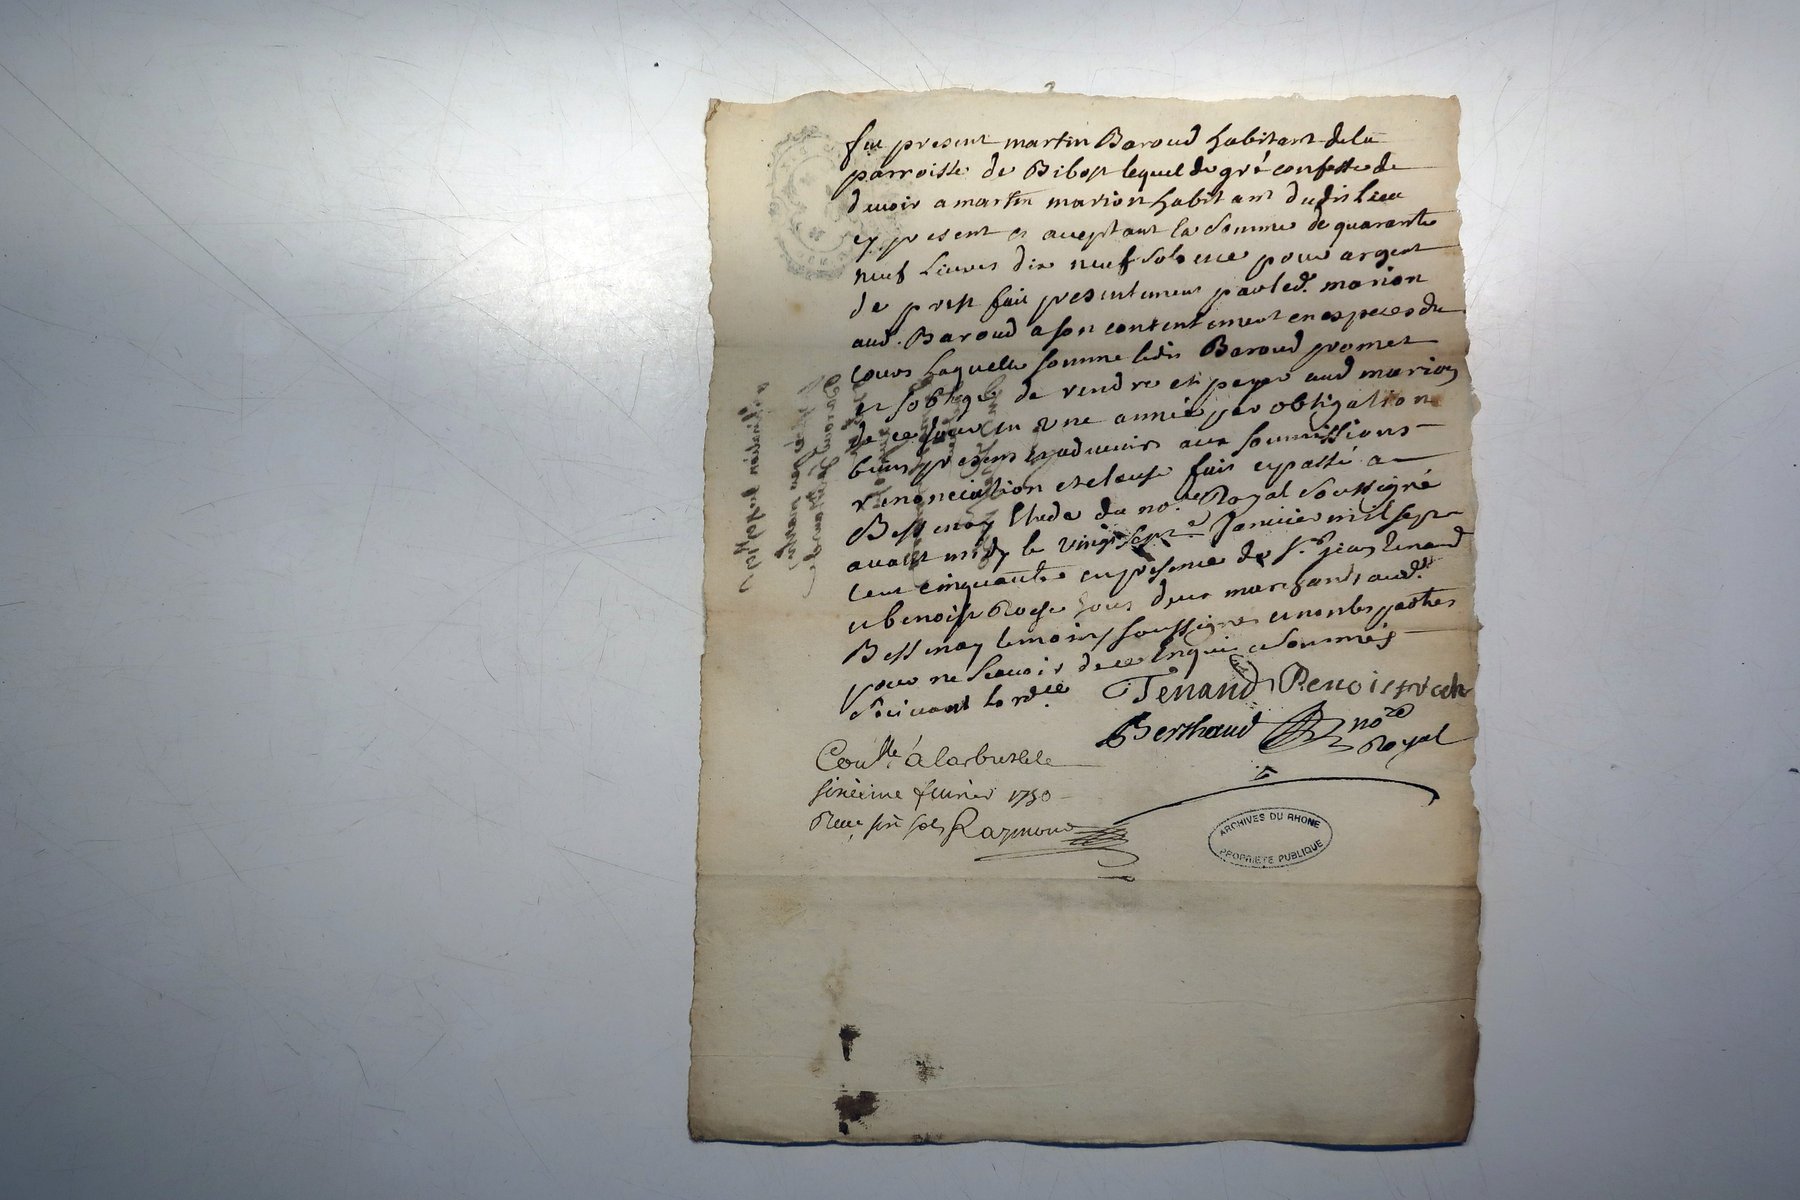 fut present martin Baroud habitant dela
parroisse de Bibost lequel de gré confesse de
devoir a martin marion habitant dudit Lieu
cy present et aceptant la somme de quarante
neuf Livres dix neuf sols pour argent
de prest fait presentement par led. marion
aud. Baroud a son contentement en especes du
cours Laquelle somme ledit Baroud promet
et soblige de rendre et payer aud marion
de ce jour en une année par obligation
biens presens advenirs aux soumissions
renonciation et clause fait et passé a
Bessenay Etude du no.re Royal soussigné
avant midy le vingt sept.e Janvier mil sept
cent cinquante en presence de S.r Jean Tenand
et benoist Roche tous deux marchands aud.
Bessenay temoins soussignes et non les parties
pour ne scavoir de ce Enquis et sommés
suivant lord.ce
Tenand Benoist roche
Berthaud no.re Royal
Con.llé a Larbresle
sixieme fevrier 1750
Receu six sols Raymond
ARCHIVES DU RHONE
PROPRIETE PUBLIQUE